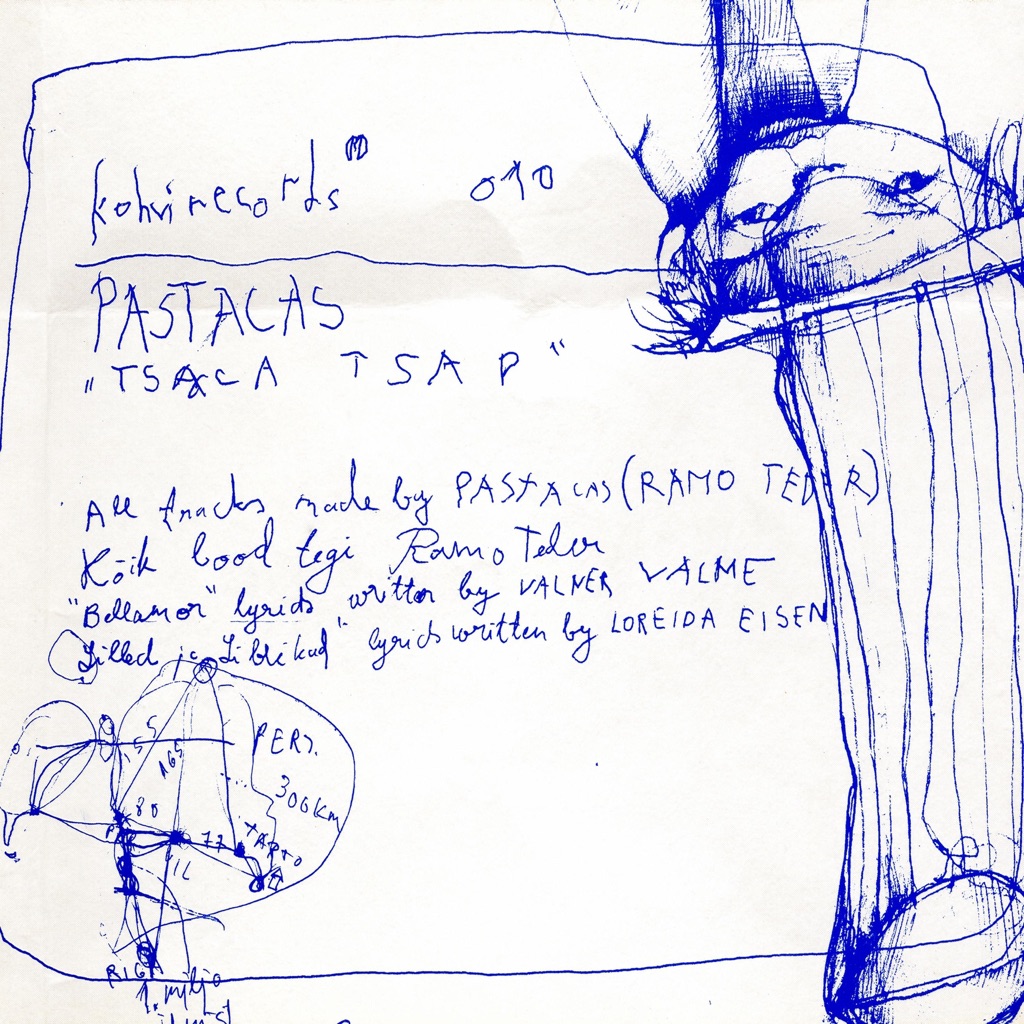 kohvirecords 010
PASTACAS
"TSACA TSAP"
All tracks made by PASTACAS (RAMO TEDER)
Kõik lood tegi Ramo Teder
"Bellamor" lyrics written by VALNER VALME
Lilled ja Liblikad" lyrics written by LOREIDA EISEN
155
165
PERS.
300KM
80
77
TARTO
RIGA
1. miljo